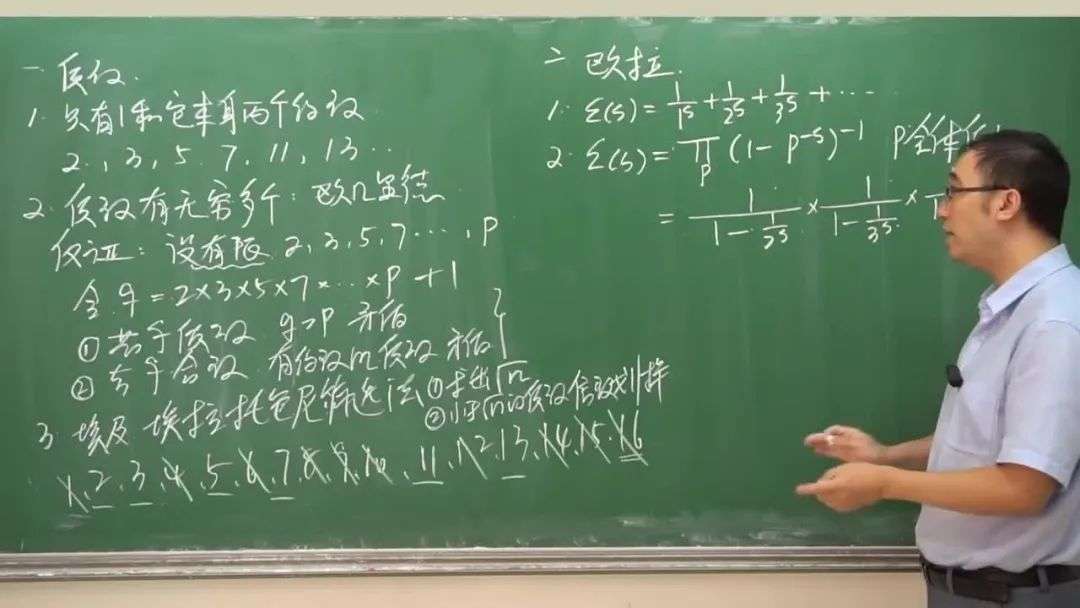 一 质数.
1. 只有1和它本身两个约数
2, 3, 5. 7, 11, 13 ..
2. 质数有无穷多个: 欧几里德
反证: 设有限 2, 3, 5, 7 ..., P
令 q = 2×3×5×7×...×P + 1
① 若q质数 q>P 矛盾
② 若q合数 有约数m质数 矛盾
3. 埃及 埃拉托色尼筛选法 ① 求出√n
② 小于√n的质数倍数划掉
1. 2. 3. 4. 5. 6. 7. 8. 9. 10. 11. 12. 13. 14. 15. 16
二 欧拉.
1. ξ(s) = 1/1^s + 1/2^s + 1/3^s + ...
2. ξ(s) = ∏_p (1 - p^-s)^-1 P全体
= 1/(1 - 1/2^s) × 1/(1 - 1/3^s) ×